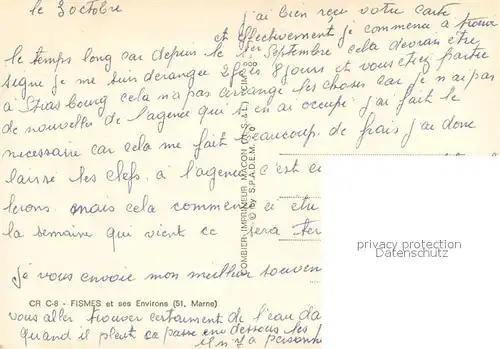 le 3 octobre
j'ai bien reçu votre carte
et effectivement je commence a trouver
le temps long car depuis le 1er Septembre cela devrait être
signé je me suis dérangée 2 fois 8 jours et vous étiez partie
a Strasbourg cela n'a pas arrangé les choses car je n'ai pas
de nouvelle de l'agence qui s'en ai occupé j'ai fait le
necessaire car cela me fait beaucoup de frais j'ai donc
laissé les clefs a l'agence c'est
lerons mais cela commen
la semaine qui vient ce sera
je vous envoie mon meilleur souven
CR C-8 - FISMES et ses Environs (51, Marne)
vous aller trouver certainement de l'eau da
Quand il pleut ca passe en dessous les
il n'y a personn
COMBIER IMPRIMEUR MACON
© by S.P.A.D.E.M.
privacy protection
Datenschutz